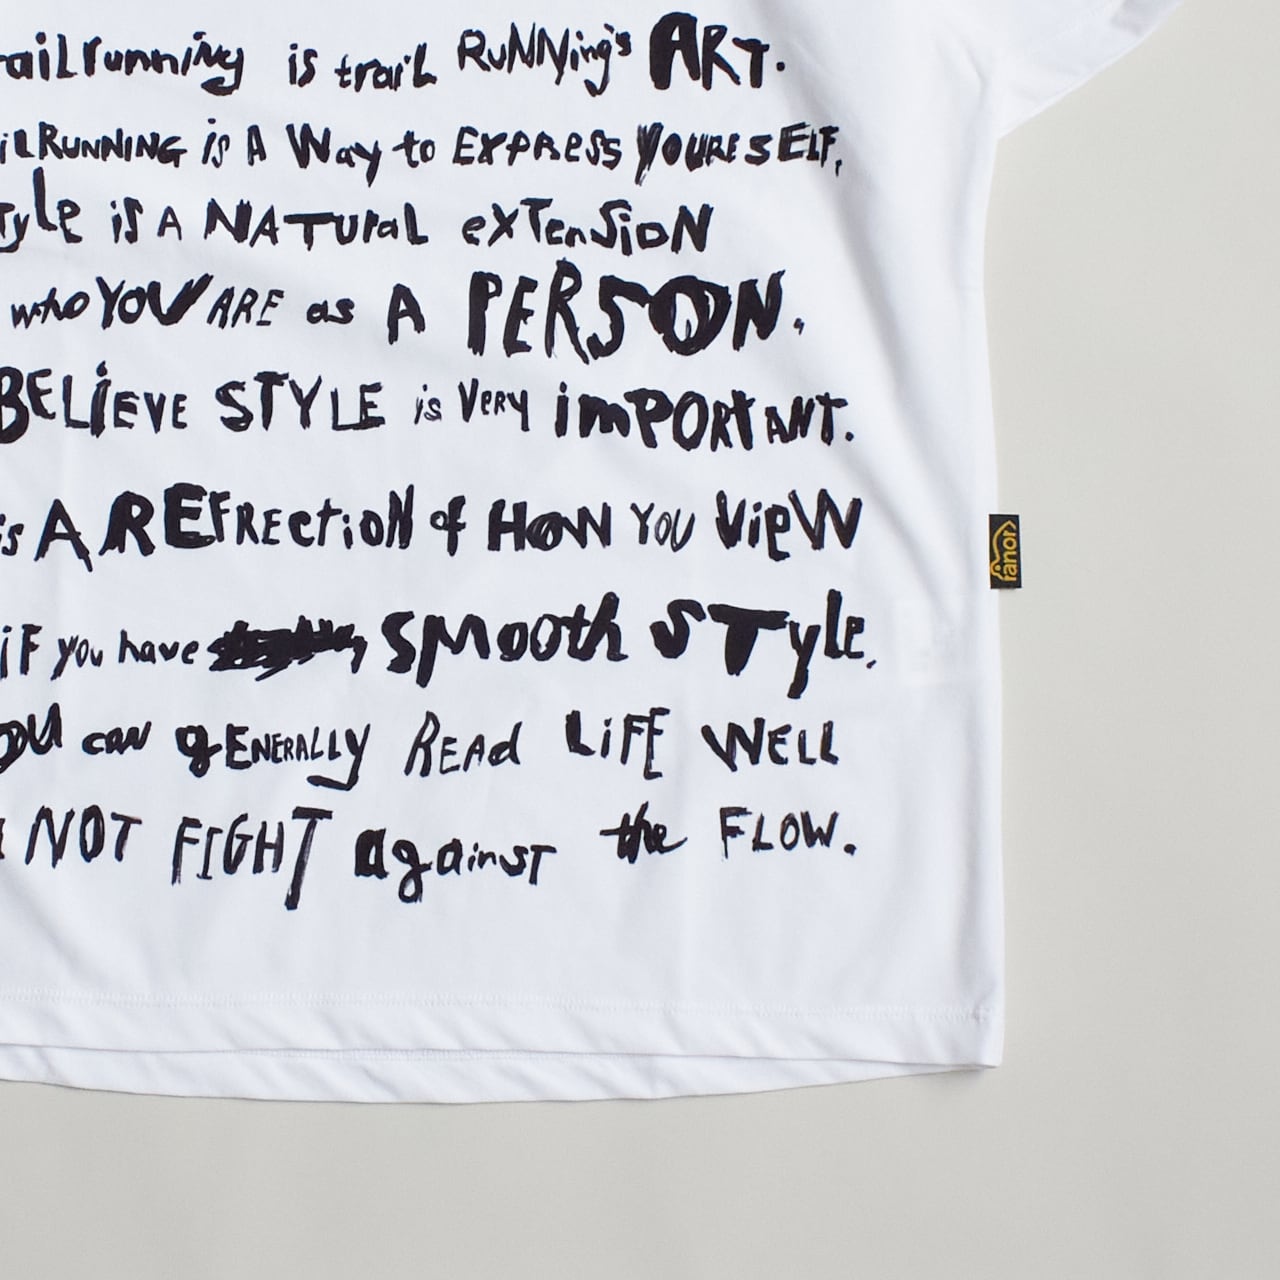 railrunning is trail RuNNing's ART.
ilRUNNING is A Way to EXPRESS YOURESELF,
Tyle is A NATURAL exTenSioN
who YOU ARE as A PERSON.
BELiEVE STYLE is VeRY imPORTANT.
is A REFRECtioN of HOW YOU VieW
iF you have SMooth STyle,
ou can gENERALLY READ LiFE WELL
NOT FIGHT against the FLOW.
ranor